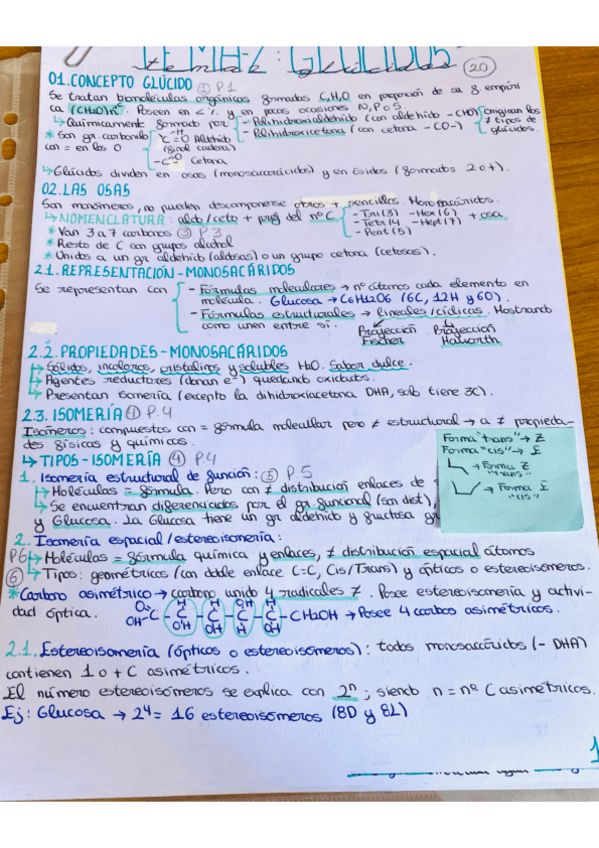 TEMA-2: GLÚCIDOS
20
01. CONCEPTO GLÚCIDO ① P1
Se tratan biomoléculas orgánicas formadas C,H,O en proporción de su f empíri
ca (CH2O)n. Poseen en < % y en pocas ocasiones N, P o S
↳ Químicamente formado por - Polihidroxialdehído (con aldehído -CHO) Originan los
- Polihidroxicetona (con cetona -CO-) 2 tipos de glúcidos.
* Son gr. carbonilo con = en los O
-H C=O Aldehído (final cadena)
-C=O Cetona
↳ Glúcidos dividen en osas (monosacáridos) y en ósidos (formados 2 o +).
02. LAS OSAS
Son monómeros, no pueden descomponerse otros + sencillos. Monosacáridos.
↳ NOMENCLATURA: aldo/ceto + pref del nº C. - Tri(3) - Hex(6) + osa
- Tetr(4) - Hept(7)
- Pent(5)
* Van 3 a 7 carbonos ③ P3
* Resto de C con grupos alcohol
* Unidos a un gr aldehído (aldosas) o un grupo cetona (cetosas).
2.1. REPRESENTACIÓN - MONOSACÁRIDOS
Se representan con - Fórmulas moleculares → nº átomos cada elemento en
molécula. Glucosa → C6H12O6 (6C, 12H y 6O).
- Fórmulas estructurales → lineales/cíclicas. Mostrando
como unen entre sí. Proyección Fischer Proyección Haworth
2.2. PROPIEDADES - MONOSACÁRIDOS
↳ Sólidos, incoloros, cristalinos y solubles H2O. Sabor dulce.
↳ Agentes reductores (donan e-) quedando oxidados.
↳ Presentan isomería (excepto la dihidroxiacetona DHA, solo tiene 3C).
2.3. ISOMERÍA P.4
Isómeros: compuestos con = fórmula molecular pero ≠ estructural → a ≠ propieda-
des físicas y químicas.
↳ TIPOS - ISOMERÍA ④ P.4
Forma "trans" → Z
Forma "cis" → E
→ Forma Z "trans"
→ Forma E "cis"
1. Isomería estructural de función: ⑤ P5
↳ Moléculas = fórmula. Pero con ≠ distribución enlaces de
↳ Se encuentran diferenciados por el gr. funcional (son dist),
y Glucosa. La Glucosa tiene un gr aldehído y fructosa gr
2. Isomería espacial / estereoisomería:
P6 ↳ Moléculas = fórmula química y enlaces, ≠ distribución espacial átomos
⑥ ↳ Tipos: geométricos (con doble enlace C=C, Cis/Trans) y ópticos o estereoisómeros.
* Carbono asimétrico → carbono unido 4 radicales ≠. Posee estereoisomería y activi-
dad óptica.
O H H H H
OH-C-C-C-C-C-CH2OH → Posee 4 carbos asimétricos.
OH OH OH OH
2.1. Estereoisomería (ópticos o estereoisómeros): todos monosacáridos (- DHA)
contienen 1 o + C asimétricos.
El número estereoisómeros se explica con 2ⁿ; siendo n = nº C asimétricos.
Ej: Glucosa → 2⁴ = 16 estereoisómeros (8D y 8L)
1